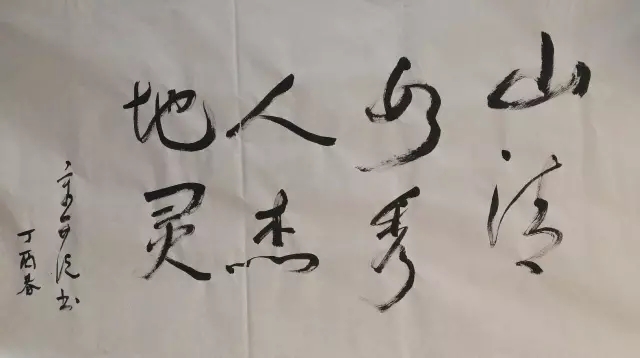 山清
水秀
人杰
地灵
书
丁酉春